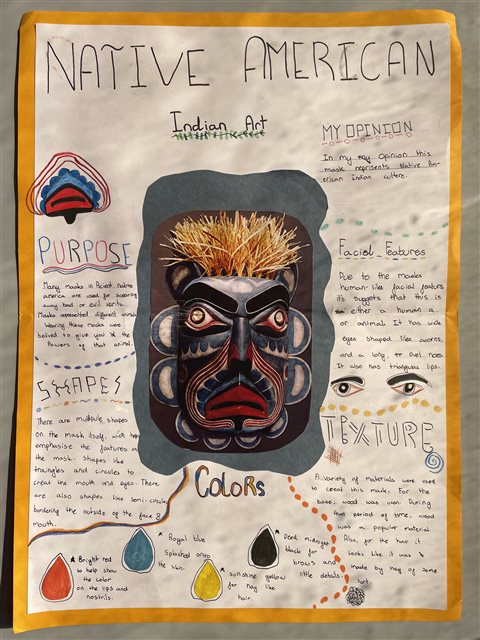 NATIVE AMERICAN
Indian Art
MY OPINION
In my my opinion this
mask reprisents Native Am-
erican Indian culture.
PURPOSE
Many masks in Ancient native
america are used for scearing
away bad or evil spirits.
Masks represented different animals
Wearing these masks were
belived to give you the
powers of that animal.
Facial Features
Due to the masks
human-like facial features
it's suggets that this is
either a human
or animal. It has wide
eyes shaped like acorns,
and a long, oval nose
It also has triangular lips.
SHAPES
There are multiple shapes
on the mask itself, wich help
emphasise the features of
the mask. Shapes like
traingles and circules to
creat the mouth and eyes. There
are also shapes like semi-circules
bordering the outside of the face &
mouth.
TEXTURE
A variety of materials were used
to creat this mask. For the
base, wood was usen. During
that period of time, wood
was a popular material
Also, for the hair it
looks like it was
made by hay of some
sort.
COLORS
Bright red
to help show
the color
on the lips and
nostrils.
Royal blue
Splashed onto
the skin.
sunshine yellow
for hay like
hair.
Dark midnight
black for
brows and
little details.